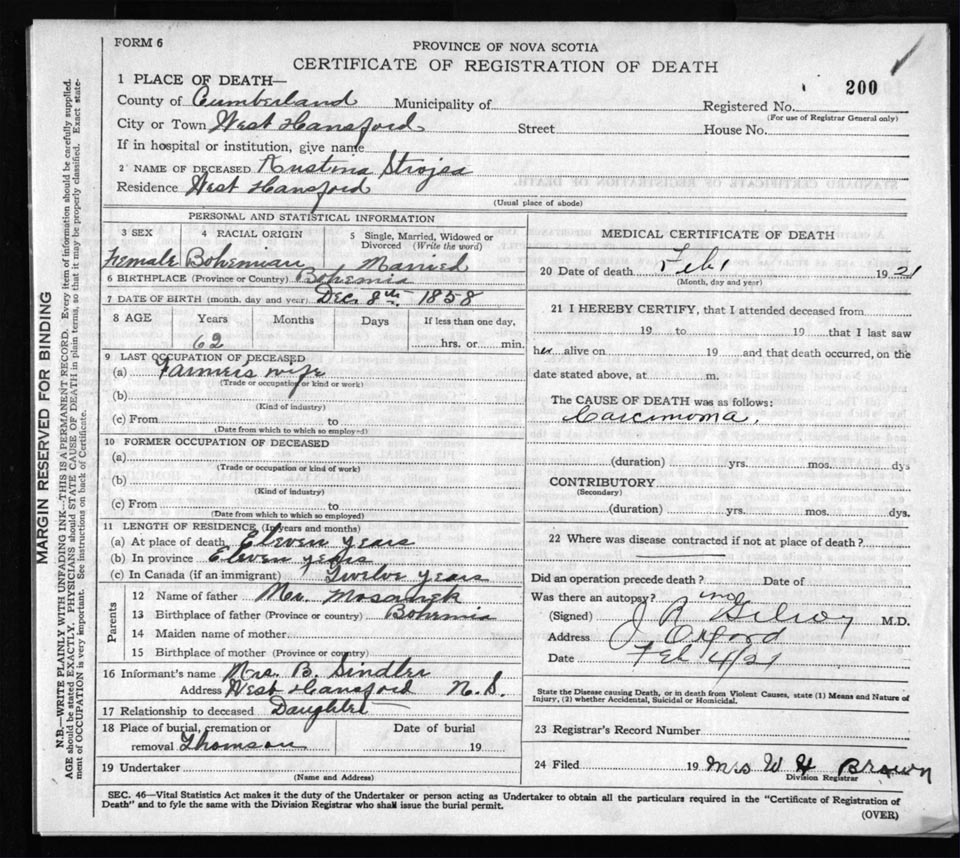 FORM 6
PROVINCE OF NOVA SCOTIA
CERTIFICATE OF REGISTRATION OF DEATH
200
1 PLACE OF DEATH—
County of Cumberland Municipality of Registered No.
(For use of Registrar General only)
City or Town West Hansford Street House No.
If in hospital or institution, give name
2 NAME OF DECEASED Rustina Strojsa
Residence West Hansford
(Usual place of abode)
PERSONAL AND STATISTICAL INFORMATION
3 SEX
Female
4 RACIAL ORIGIN
Bohemian
5 Single, Married, Widowed or Divorced (Write the word)
Married
6 BIRTHPLACE (Province or Country) Bohemia
7 DATE OF BIRTH (month, day and year) Dec. 8th 1858
8 AGE Years Months Days If less than one day,
62 hrs. or min.
9 LAST OCCUPATION OF DECEASED
(a) Farmers wife
(Trade or occupation or kind or work)
(b)
(Kind of industry)
(c) From to
(Date from which to which so employed)
10 FORMER OCCUPATION OF DECEASED
(a)
(Trade or occupation or kind of work)
(b)
(Kind of industry)
(c) From to
(Date from which to which so employed)
11 LENGTH OF RESIDENCE (In years and months)
(a) At place of death Eleven years
(b) In province Eleven years
(c) In Canada (if an immigrant) Twelve years
Parents
12 Name of father Mr.
13 Birthplace of father (Province or country) Bohemia
14 Maiden name of mother
15 Birthplace of mother (Province or country)
16 Informant's name Mrs. B. Sindler
Address West Hansford N.S.
17 Relationship to deceased Daughter
18 Place of burial, cremation or removal Thomson
Date of burial
19
19 Undertaker
(Name and Address)
MEDICAL CERTIFICATE OF DEATH
20 Date of death Feb 1 1921
(Month, day and year)
21 I HEREBY CERTIFY, that I attended deceased from
19 to 19 that I last saw
her alive on 19 and that death occurred, on the
date stated above, at m.
The CAUSE OF DEATH was as follows:
Carcinoma.
(duration) yrs. mos. dys
CONTRIBUTORY
(Secondary)
(duration) yrs. mos. dys.
22 Where was disease contracted if not at place of death?
Did an operation precede death? Date of
Was there an autopsy? no
(Signed) J R Gilroy M.D.
Address Oxford
Date Feb 4/21
State the Disease causing Death, or in death from Violent Causes, state (1) Means and Nature of
Injury, (2) whether Accidental, Suicidal or Homicidal.
23 Registrar's Record Number
24 Filed 19 Mrs W H Brown
Division Registrar
SEC. 46—Vital Statistics Act makes it the duty of the Undertaker or person acting as Undertaker to obtain all the particulars required in the "Certificate of Registration of
Death" and to fyle the same with the Division Registrar who shall issue the burial permit.
(OVER)
MARGIN RESERVED FOR BINDING
N.B.—WRITE PLAINLY WITH UNFADING INK—THIS IS A PERMANENT RECORD. Every item of information should be carefully supplied.
AGE should be stated EXACTLY. PHYSICIANS should STATE CAUSE OF DEATH in plain terms, so that it may be properly classified. Exact state-
ment of OCCUPATION is very important. See instructions on back of Certificate.